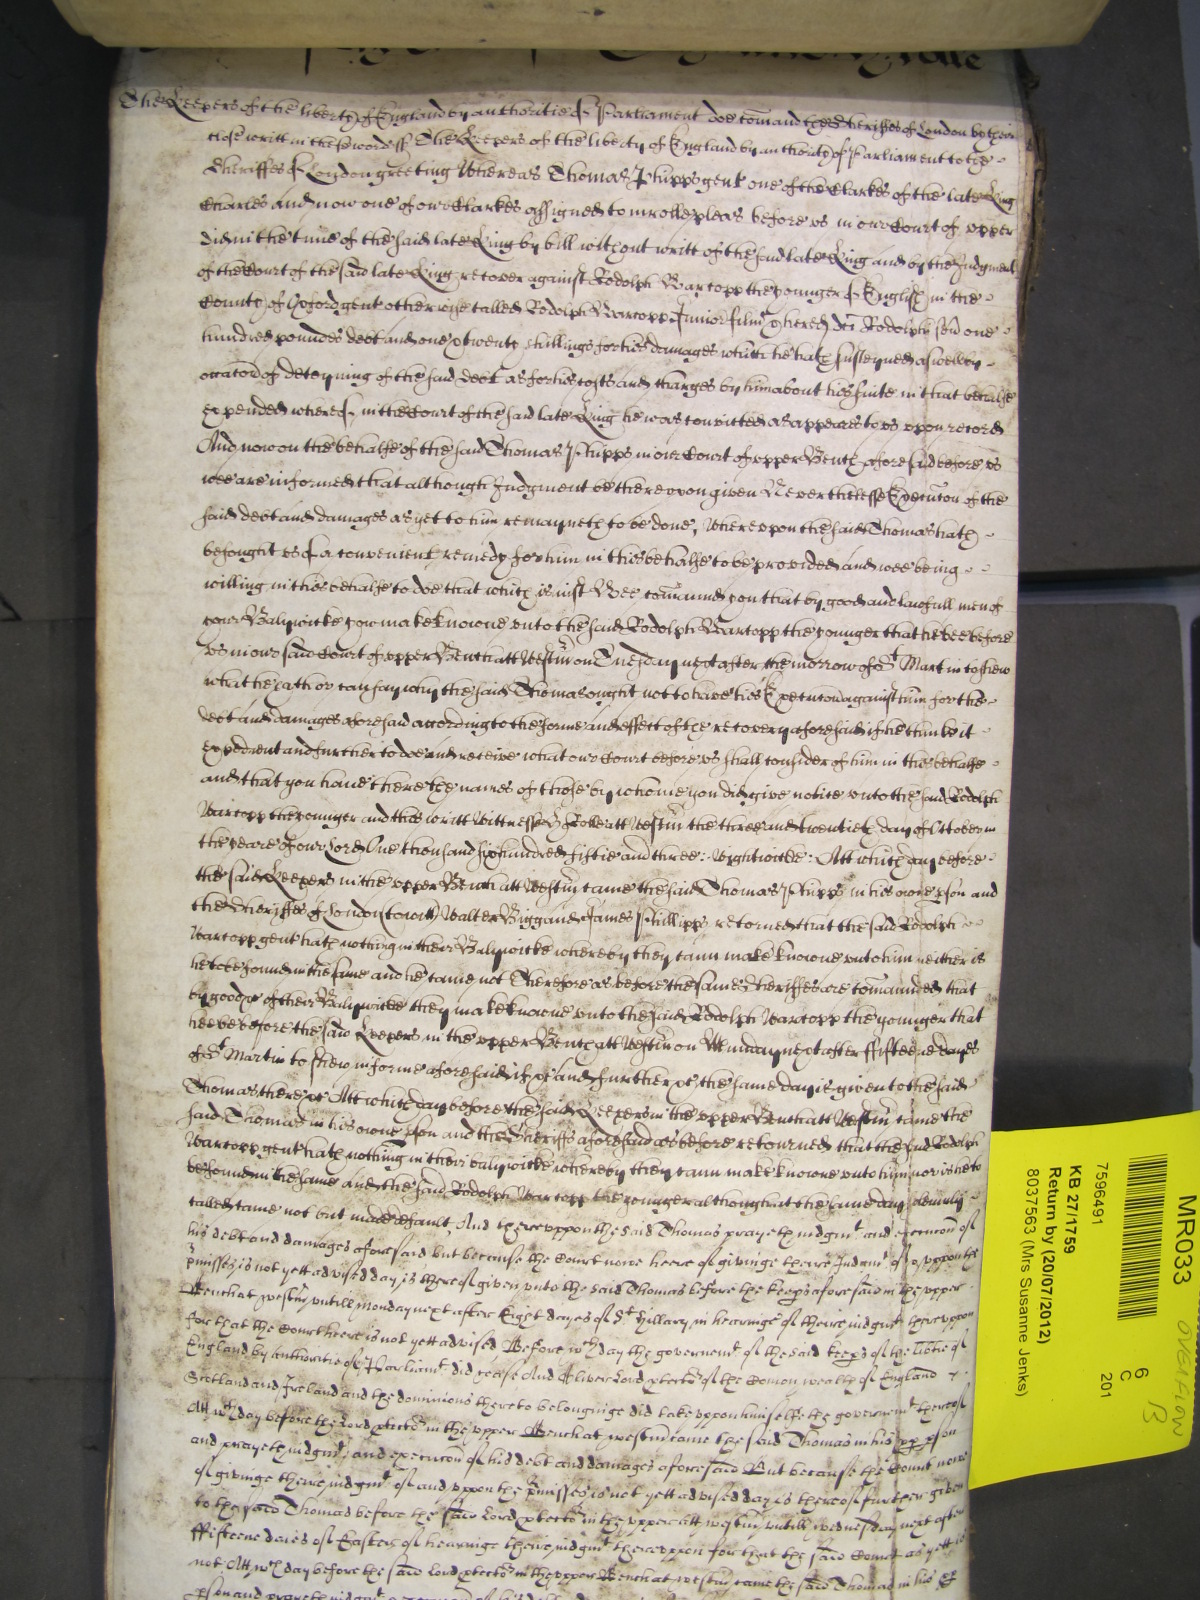 The Keepers of the liberty of England by authoritie of Parliament doe comand the Sheriffes of London by their
close writt in these words ss The Keepers of the liberty of England by authority of Parliament to the
Sheriffes of London greeting Whereas Thomas Phipps gent one of the Clarkes of the late King
Charles and now one of our Clarkes assigned to inrolle pleas before us in our Court of upper
did in the time of the said late King by bill without writt of the said late King and by the Judgment
of the Court of the said late King recover against Rodolph Wartopp the younger of English in the
County of Oxford gent otherwise called Rodolph Wartopp Junior one
hundred poundes debt and one & twenty shillings for his damages which he hath susteyned aswell by
occacon of deteyning of the said debt as for his costs and charges by him about his suite in that behalfe
expended whereof in the Court of the said late King he was convicted as appeares to us upon record
And now on the behalfe of the said Thomas Phipps in our Court of upper Bench aforesaid before us
wee are informed that although Judgment be thereupon given Neverthelesse Execucon of the
said debt and damages as yet to him remayneth to be done, Whereupon the said Thomas hath
besought us of a convenient remedy for him in this behalfe to be provided and wee being
willing in this behalfe to doe that which is iust Wee comaund you that by good and lawfull men of
your Balywicke you make knowne unto the said Rodolph Wartopp the younger that he bee before
us in our said Court of upper Bench att Westm on Tuesday next after the morrow of St Martin to shew
what he hath or can say why the said Thomas ought not to have his Execucon against him for the
debt and damages aforesaid according to the forme and effect of the recovery aforesaid if he thinke it
expedient and further to doe and receive what our Court before us shall consider of him in this behalfe
and that you have there the names of those by whome you did give notice unto the said Rodolph
Wartopp the younger and this writt Wittnesse H Rolle att Westm the three and twentieth day of October in
the yeare of our Lord One thousand six hundred fiftie and three: Wightwicke: Att which day before
the said Keepers in the upper Bench att Westm came the said Thomas Phipps in his owne pson and
the Sheriffes of London (to witt) Walter Biggand James Phillipps returned that the said Rodolph
Wartopp gent hath nothing in their Balywicke whereby they cann make knowne unto him neither is
he to be found in the same and he came not Therefore as before the same Sheriffes are comaunded that
by good &c of their Balywicke they make knowne unto the said Rodolph Wartopp the younger that
hee be before the said Keepers in the upper Bench att Westm on Munday next after fifteene dayes
of St Martin to shew in forme aforesaid if &c and further &c the same day is given to the said
Thomas there &c Att which day before the said Keepers in the upper Bench att Westm came the
said Thomas in his owne pson and the Sheriffs aforesaid as before returned that the said Rodolph
Wartopp gent hath nothing in their balywicke whereby they cann make knowne unto him nor is he to
be found in the same and the said Rodolph Wartopp the younger although att the same day solemnly
called came not but made default And thereuppon the said Thomas prayeth iudgmt and execucon of
his debt and damages aforesaid but because the Court nowe heere of givinge theire Judgmt of & uppon the
pmisses is not yett advised day is thereof given unto the said Thomas before the keeps aforesaid in the upper
Bench at westm untill Monday next after Eight dayes of St Hillary in hearinge of theire iudgmt thereuppon
for that the Court heere is not yett advised Before wch day the governemt of the said keeps of the libtie of
England by Authoritie of Parliamt did cease And Oliver Lord ptector of the Comon wealth of England
Scotland and Ireland and the dominions thereto belonginge did take uppon himselfe the governemt thereof
Att wch day before the Lord ptector in the upper Bench at westm came the said Thomas in his pp pson
and prayeth iudgmt and execucon of his debt and damages aforesaid But because the Court nowe
of givinge theire iudgmt of and uppon the pmisses is not yett advised day is thereof further given
to the said Thomas before the said Lord ptector in the upper att westm untill wednesday next after
ffifteene daies of Easter of hearinge theire iudgmt thereuppon for that the said Court as yett is
not Att wch day before the said Lord ptector in the upper Bench at westm came the said Thomas in his pp
pson and prayeth iudgmt
MR033
7596491
KB 27/1759
Return by (20/07/2012)
8037563 (Mrs Susanne Jenks)
6
C
201